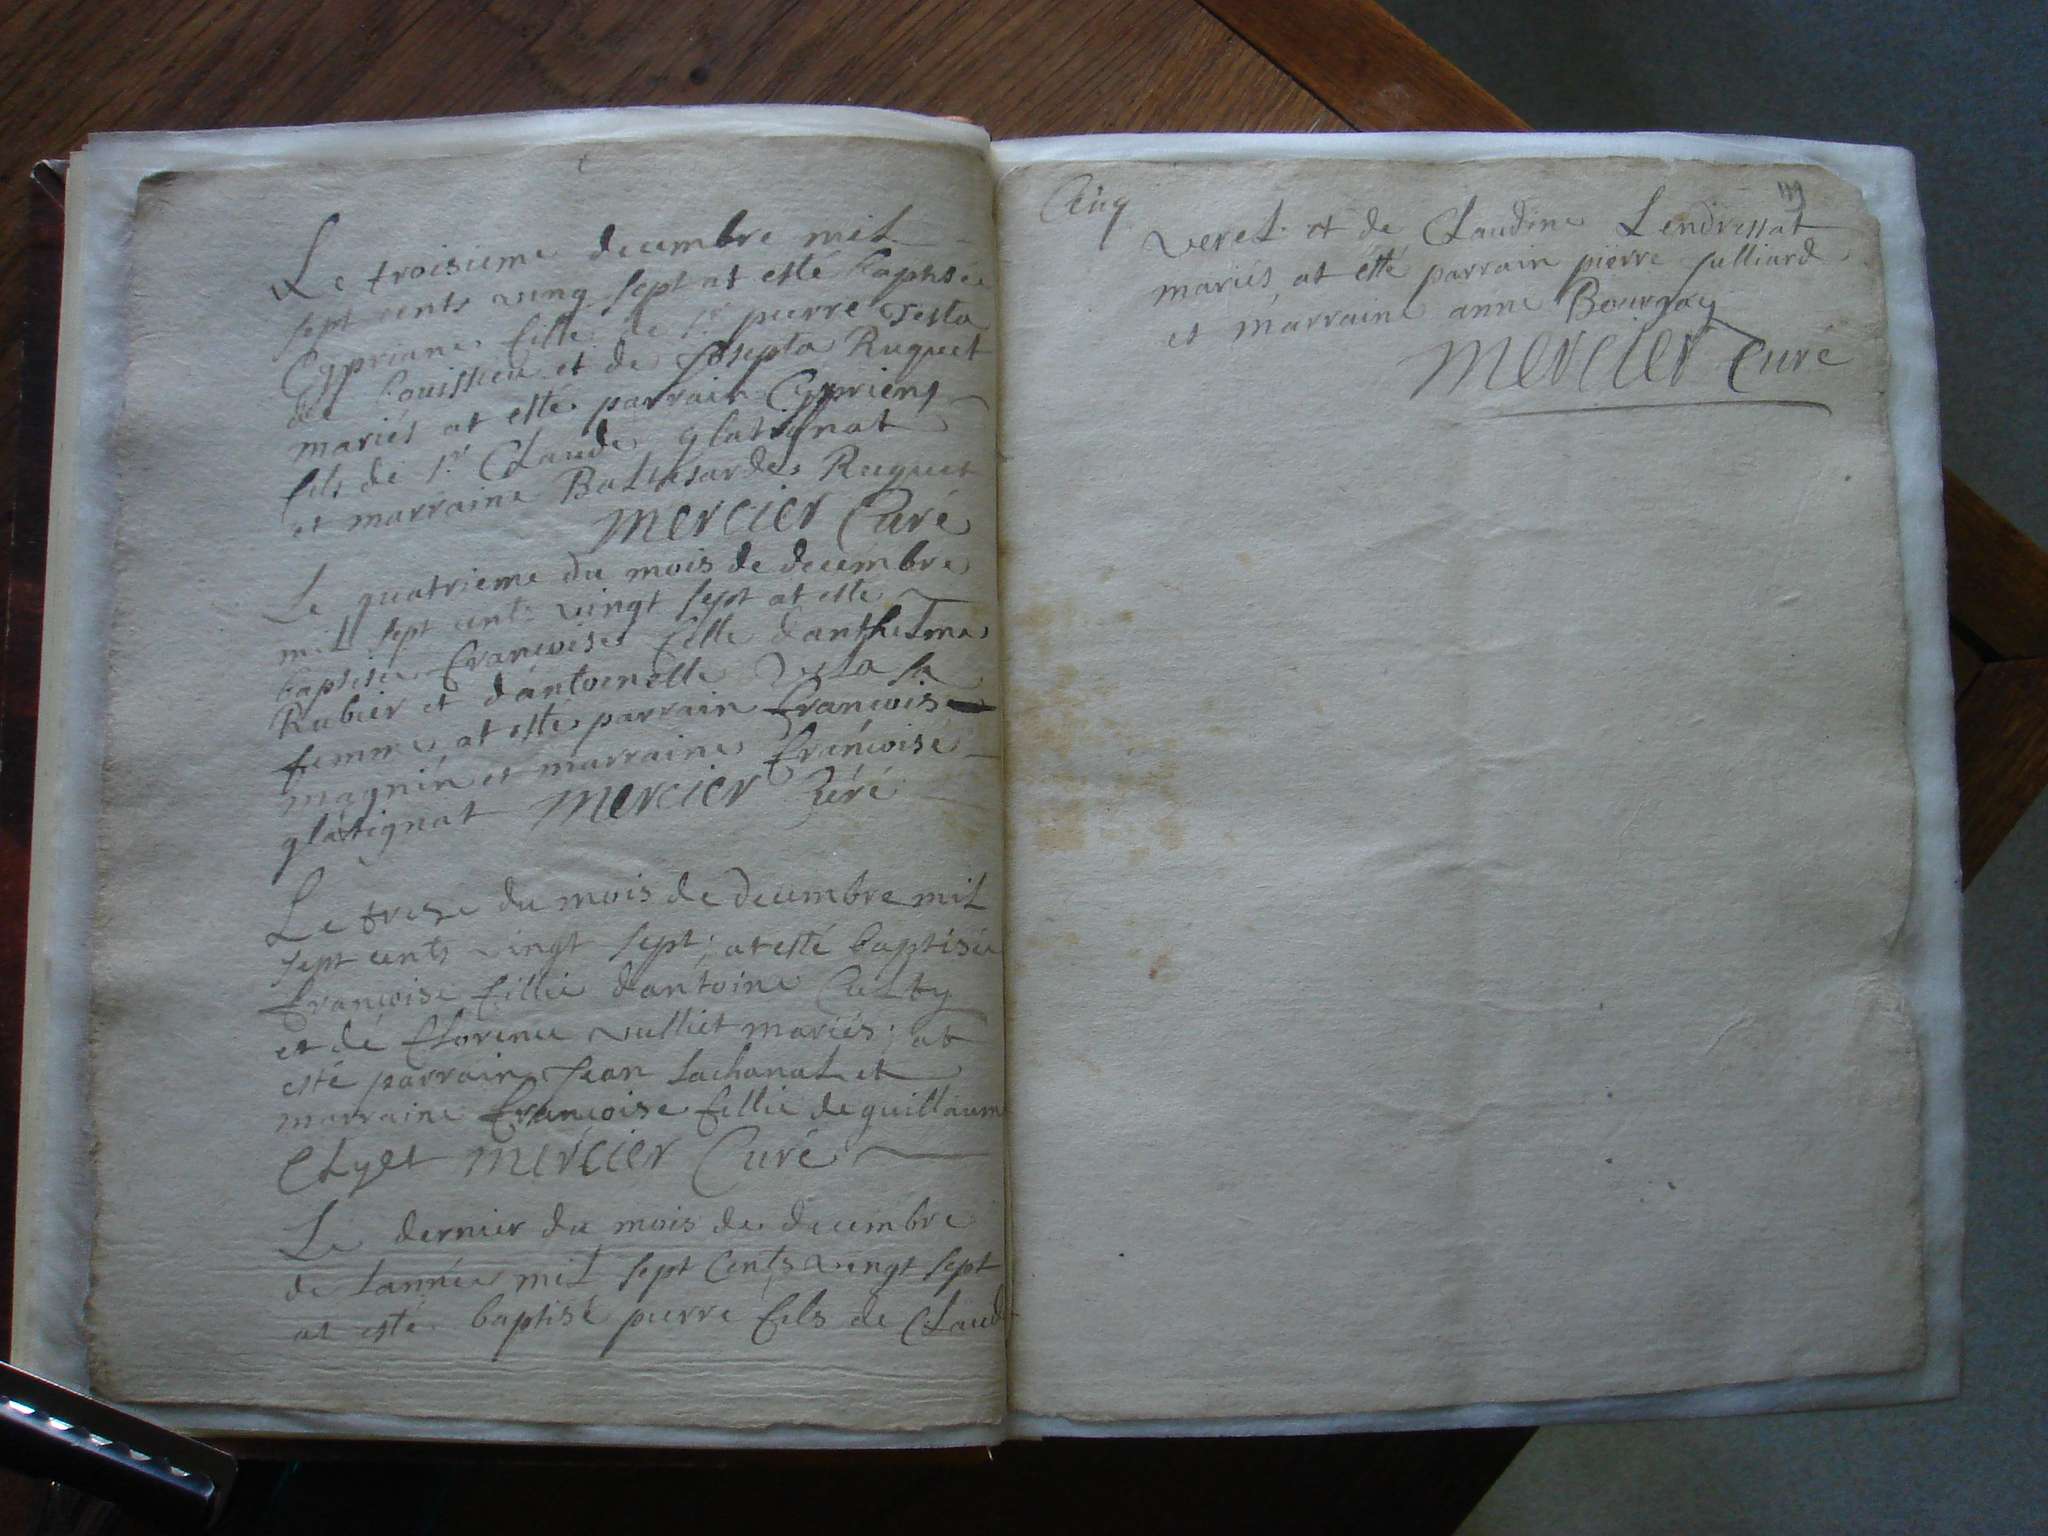 Le troisieme decembre mil
sept cents ving sept at esté baptisée
Cypriane fille de sr pierre Testa
de Couissieu et de Josepta Ruguet
mariés at esté parrain Cypriens
fils de sr Claude glatignat
et marraine Baltasarde Ruguet
mercier Curé
Le quatrieme du mois de decembre
mil sept cents vingt sept at esté
baptisée francoise fille danthelme
Rubier et dantoinette sa
femme at esté parrain francois
magnin et marraine francoise
glatignat mercier Curé
Le trese du mois de decembre mil
sept cents vingt sept; at esté baptisée
françoise fillie dantoine Culty
et dé florence vulliet mariés; at
esté parrain Jean Lachanal et
marraine francoise fillie de guillaume
mercier Curé
Le dernier du mois de decembre
de lannée mil sept Cents vingt sept
at esté baptisé pierre fils de Claude
Cinq 119
veret et de Claudine Lendressat
mariés at esté parrain pierre Julliard
et marraine anne Bournay
mercier Curé